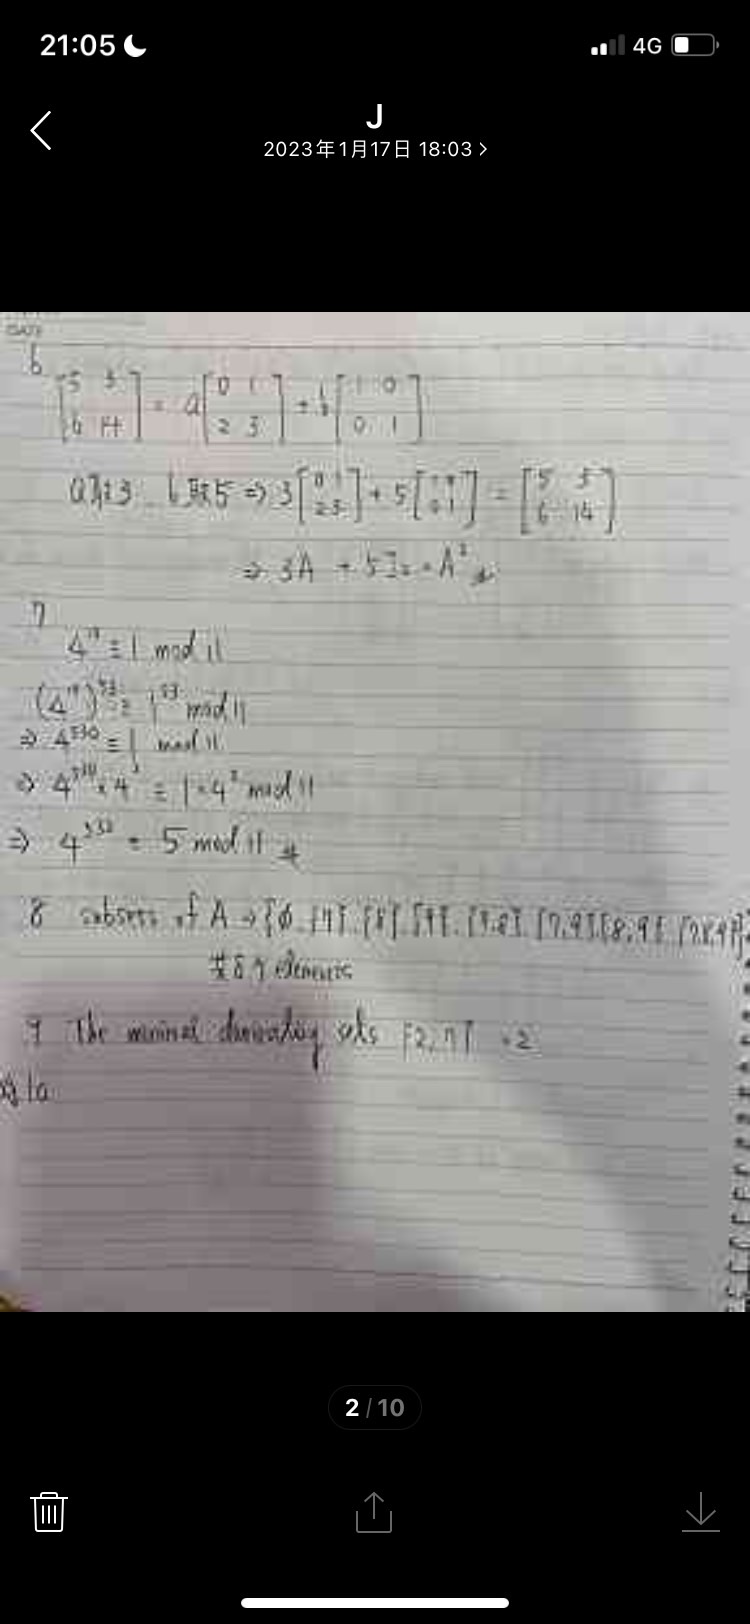 21:05
4G
J
2023年1月17日 18:03
DATE
6
[5 3
6 14] = a[0 1
2 3] + b[1 0
0 1]
a取3 b取5 ⇒ 3[0 1
2 3] + 5[1 0
0 1] = [5 3
6 14]
⇒ 3A + 5I₂ = A²
7
4¹⁰ ≡ 1 mod 11
(4¹⁰)⁵³ ≡ 1⁵³ mod 11
⇒ 4⁵³⁰ ≡ 1 mod 11
⇒ 4⁵³⁰ × 4² ≡ 1 × 4² mod 11
⇒ 4⁵³² = 5 mod 11
8 subsets of A → {∅, {7}, {8}, {9}, {7,8}, {7,9}, {8,9}, {7,8,9}}
共8個
9 The minimal dominating sets {2,7} = 2
10
2 / 10